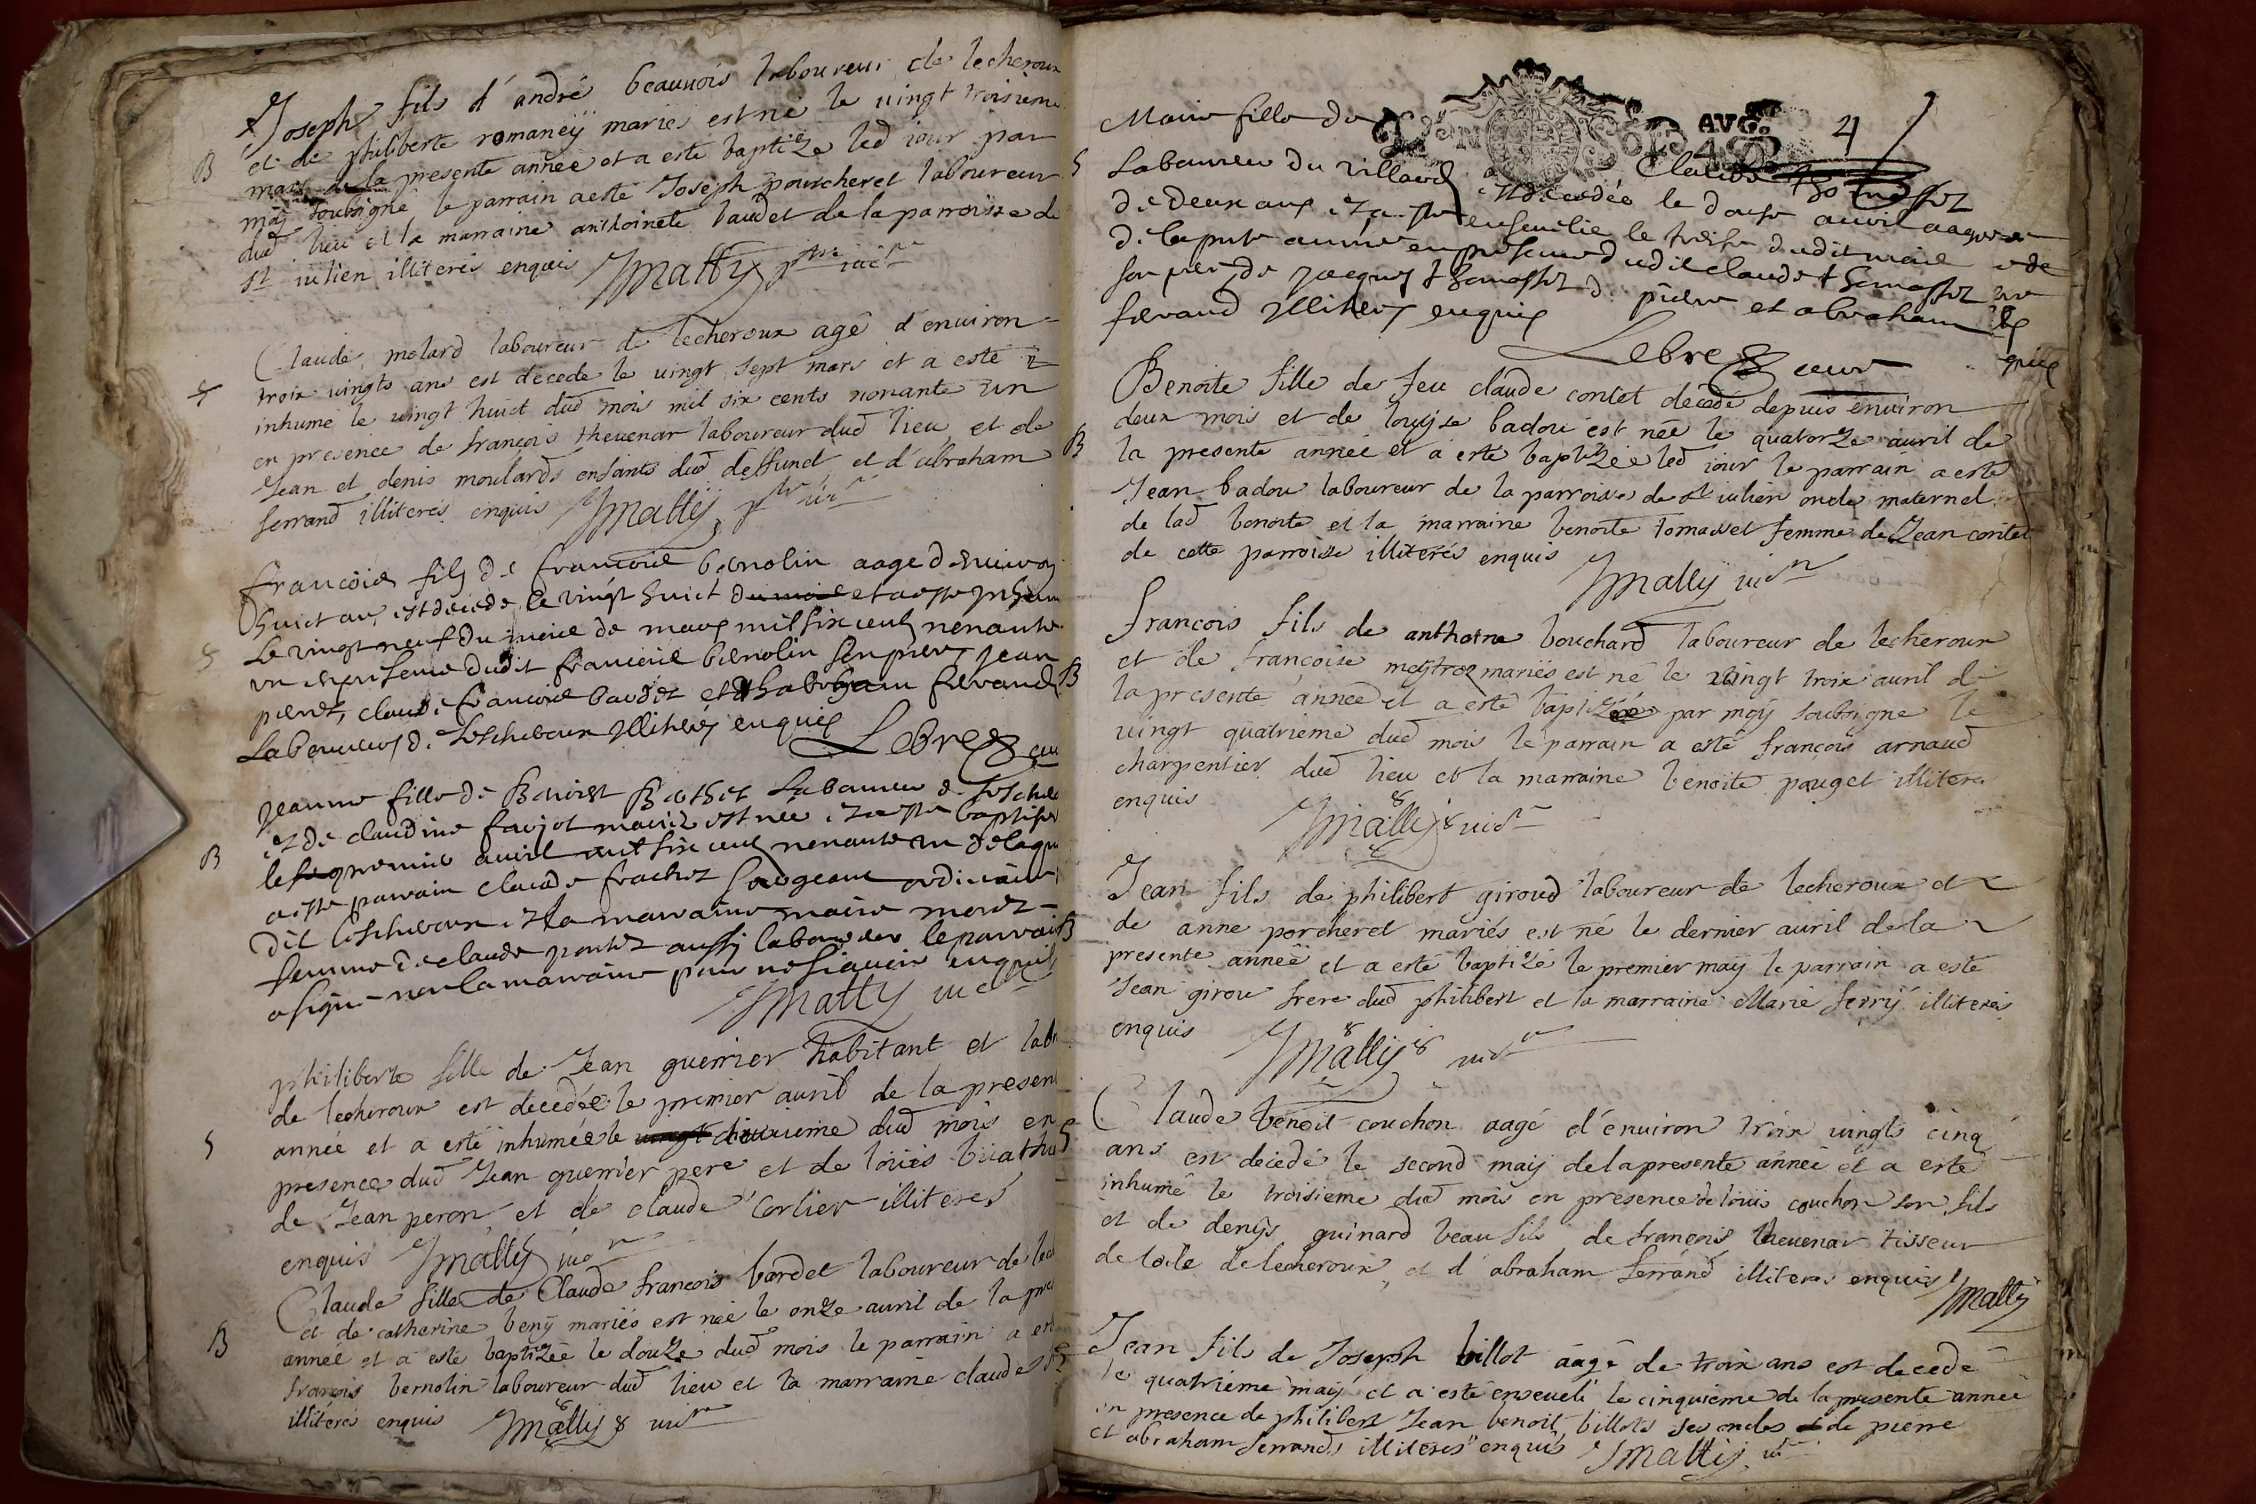 Joseph fils d'andré beauvois laboureur de lecheroux
B
et de philiberte romaneÿ mariés est né le vingt troisieme
mars de la presente année et a esté baptizé led iour par
moÿ soubsigné le parrain a esté Joseph pourcheret laboureur
dud lieu et la marraine anthoinete baudet de la parroisse de
st iulien illiterés enquis JMattÿ ptre vic
Claude molard laboureur de lecheroux agé d'environ
S
troix vingts ans est decede le vingt sept mars et a esté
inhumé le vingt huict dud mois mil six cents nonante un
en presence de françois thevenar laboureur dud lieu et de
Jean et denis moulards enfants dud deffunct et d'abraham
ferrand illiterés enquis JMattÿ ptre vic
francois fils de francois bernolin aage denviron
huict ans est decede le vingt huict du mois et a este inhum
S
Le vingt neuf du mois de mars mil six cens nonante
un en presence dudit francois bernolin son pere, Jean
perret, claude francois baudet et dhabraham ferrand
Laboureurs de Leschevoux Illiterés enquis Lebre cu
Jeanne fille de Benoist Berthet Laboureur de Lesche
et de claudine favjot mariés est née et a este baptisée
B
le premier avril mil six cens nonante un de laqu
a este parrain claude frachet sergeant ordinaire
dit leschevoux et la marraine marie moret
femme de claude pontet aussi laboureur le parrain
a signe non la marraine pour ne scavoir enquis
JMattÿ vic
philiberte fille de Jean guerrier habitant et labo
de lecheroux est decedée le premier avril de la presen
S
année et a esté inhumée le vingt deuxieme dud mois en
presence dud Jean guerrier pere et de loüis buathie
de Jean peron et de claude Corlier illiterés
enquis JMattÿ vic
Claude fille de Claude françois bardet laboureur de lech
et de catherine benÿ mariés est née le onze avril de la pre
B
année et a esté baptizée le douze dud mois le parrain a est
françois bernolin laboureur dud lieu et la marraine claude
illiterés enquis JMattÿ vic
AVG.
4
Marie fille de Claude thomasset
S
Laboureur du villard est decedée le douse avril aagee
de deux ans et a este ensevelie le treise dudit mois
de la pnte année en presence dudit claude thomasset
son pere, de Jacques thomasset de pierre et abraham
ferrand Illiteres enquis
Lebre curé
Benoite fille de feu claude contet decedé depuis environ
deux mois et de louÿse badou est née le quatorze avril de
B
la presente année et a esté baptizée led iour le parrain a esté
Jean badou laboureur de la parroisse de st iulien oncle maternel
de lad benoite et la marraine benoite tomasset femme de Jean contet
de cette parroisse illiterés enquis JMattÿ vic
francois fils de anthoine bouchard laboureur de lecheroux
et de françoise meÿtrez mariés est né le vingt troix avril de
B
la presente année et a esté baptizé par moÿ soubsigné le
vingt quatrieme dud mois le parrain a esté françois arnaud
charpentier dud lieu et la marraine benoite pouget illiteré
enquis JMattÿ vic
Jean fils de philibert giroud laboureur de lecheroux et
de anne porcheret mariés est né le dernier avril de la
B
presente année et a esté baptizé le premier maÿ le parrain a esté
Jean girou frere dud philibert et la marraine Marie ferrÿ illiterés
enquis JMattÿ vic
Claude benoit couchon aagé d'environ troix vingts cinq
S
ans est decedé le second maÿ de la presente année et a esté
inhumé le troisieme dud mois en presence de loüis couchon son fils
et de denÿs guinard beau fils de françois thevenar tisseur
de toile de lecheroux, et d'abraham ferrand illiteres enquis JMattÿ
Jean fils de Joseph billot aagé de troix ans est decedé
le quatrieme maÿ et a esté enseveli le cinquieme de la presente année
en presence de philibert Jean benoit billots ses oncles de pierre
et abraham ferrands illiterés enquis JMattÿ vic